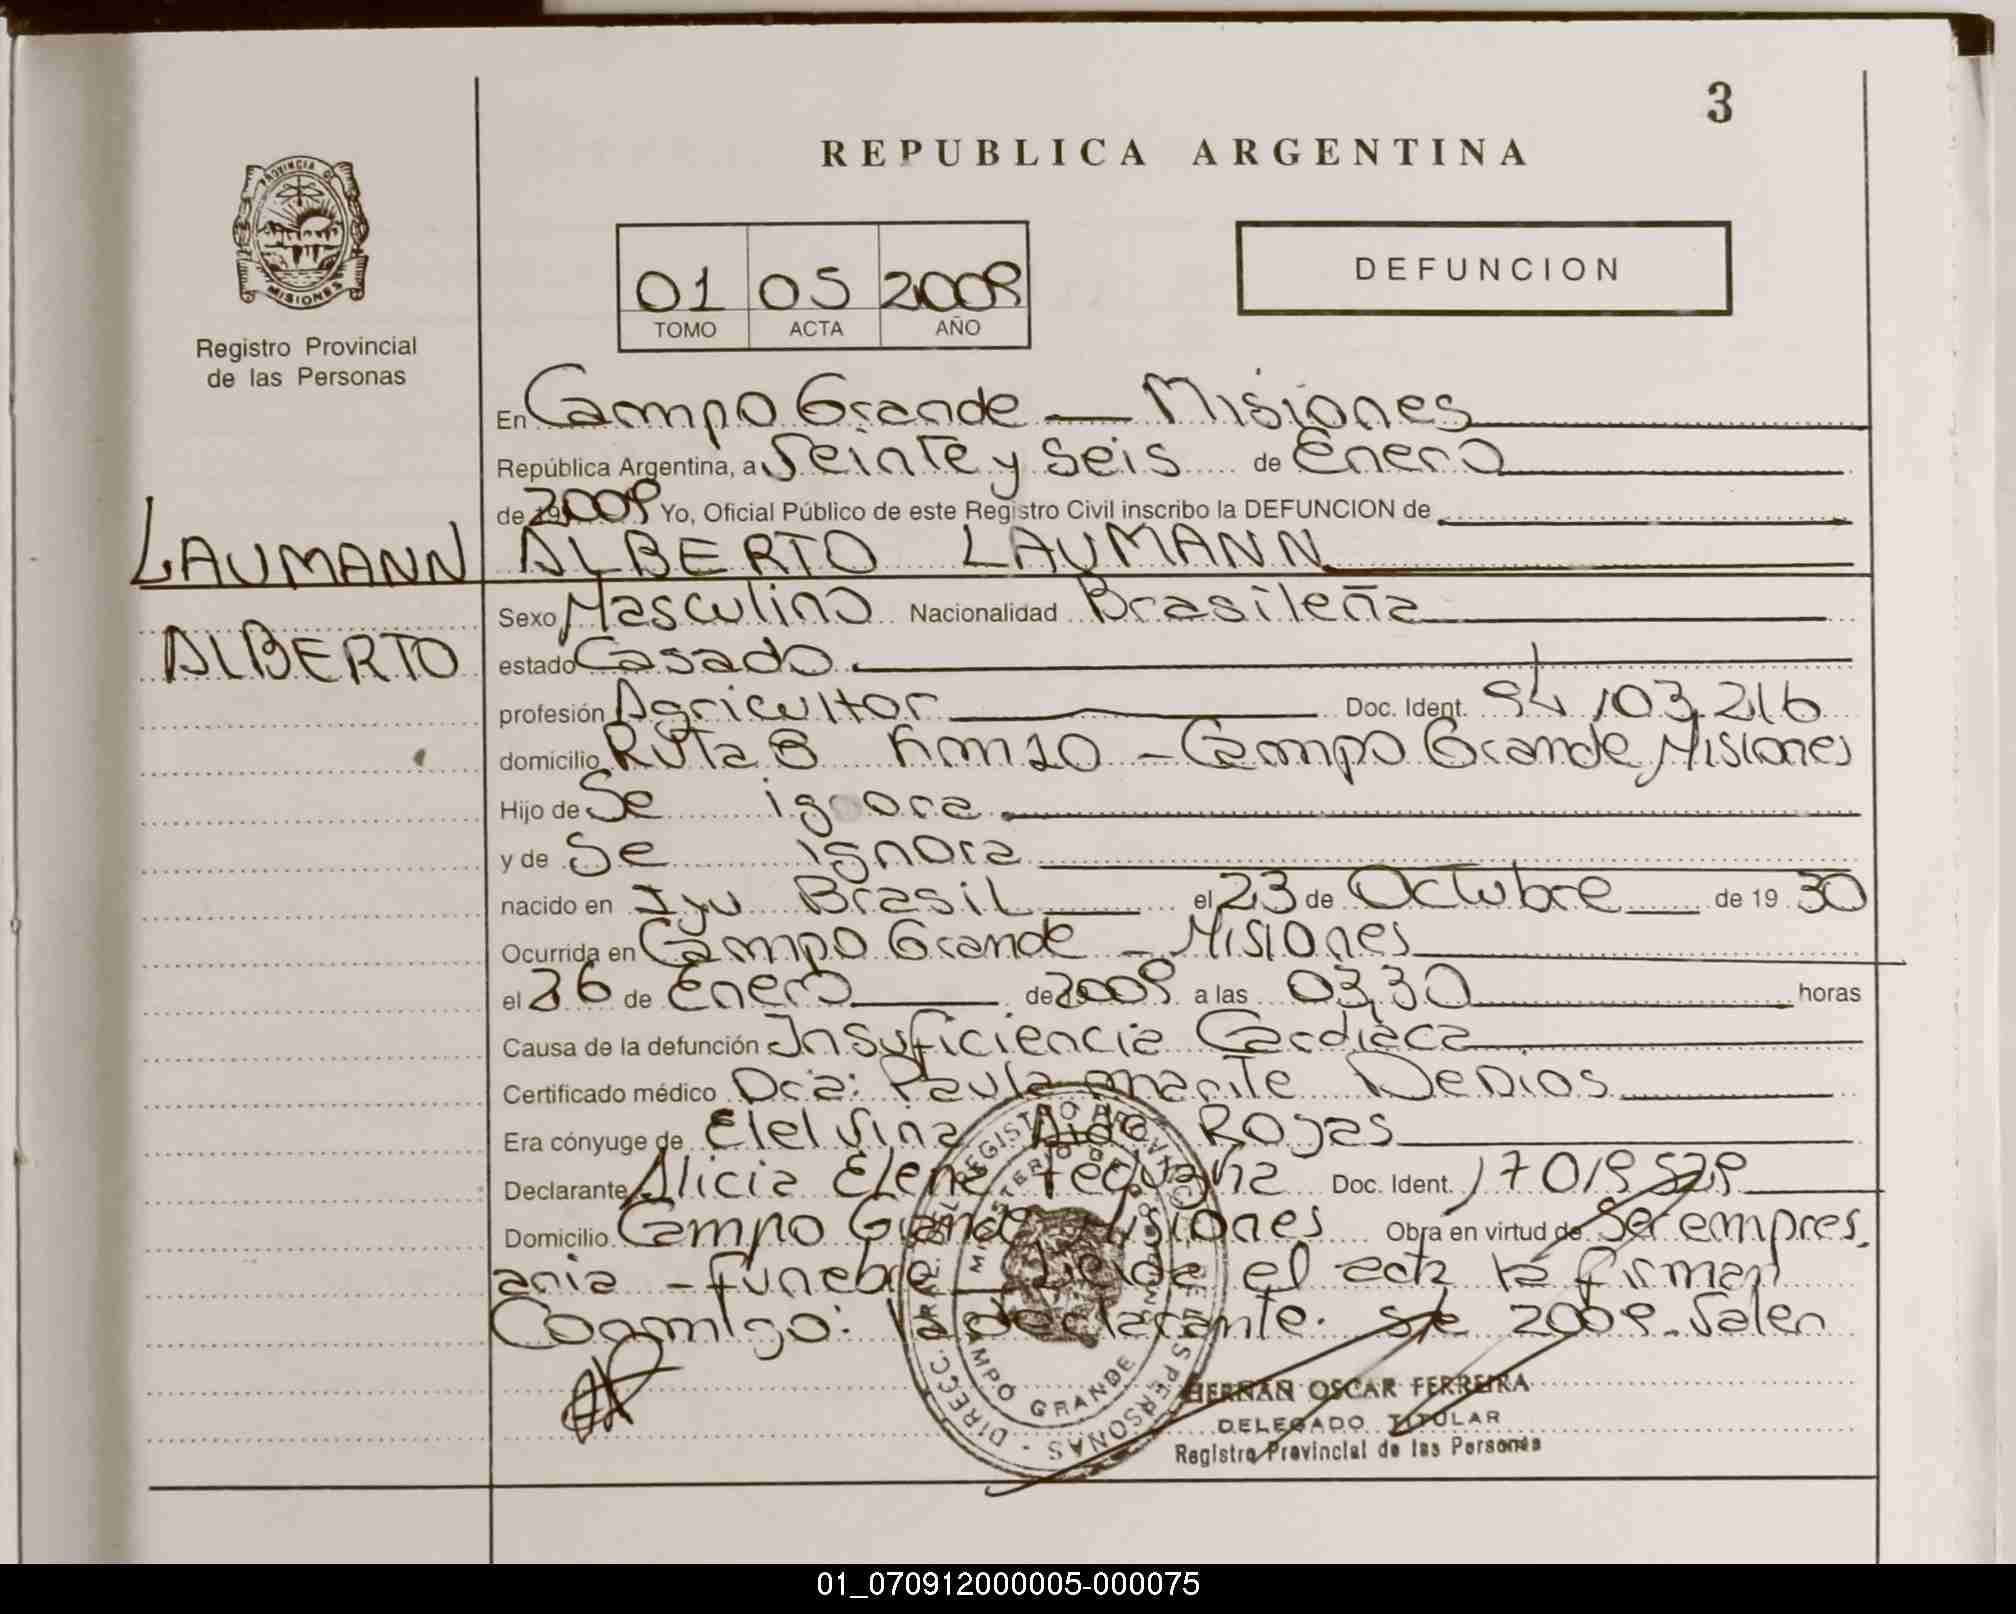 3
REPUBLICA ARGENTINA
PROVINCIA DE
MISIONES
Registro Provincial
de las Personas
01 05 2009
TOMO ACTA AÑO
DEFUNCION
En Campo Grande — Misiones
República Argentina, a Veinte y Seis de Enero
de 2009 Yo, Oficial Público de este Registro Civil inscribo la DEFUNCION de
LAUMANN ALBERTO LAUMANN
ALBERTO
Sexo Masculino Nacionalidad Brasileña
estado Casado
profesión Agricultor Doc. Ident. 94,103,216
domicilio Ruta 8 Km 10 - Campo Grande Misiones
Hijo de Se ignora
y de Se ignora
nacido en Iyu Brasil el 23 de Octubre de 19 30
Ocurrida en Campo Grande - Misiones
el 26 de Enero de 2009 a las 03,30 horas
Causa de la defunción Insuficiencia Cardiaca
Certificado médico Dra: Paula
Era cónyuge de Elelvina Aida Rojas
Declarante Alicia Elena Doc. Ident. 17019529
Domicilio Campo Grande Misiones Obra en virtud de Ser empres.
aria - funebre Leida el acta la firman
Conmigo: la declarante. 2009. Valen
HERNAN OSCAR FERREIRA
DELEGADO TITULAR
Registro Provincial de las Personas
DIRECC. GRAL. DEL REGISTRO PROVINCIAL DE LAS PERSONAS
MINISTERIO DE GOBIERNO
CAMPO GRANDE
01_070912000005-000075